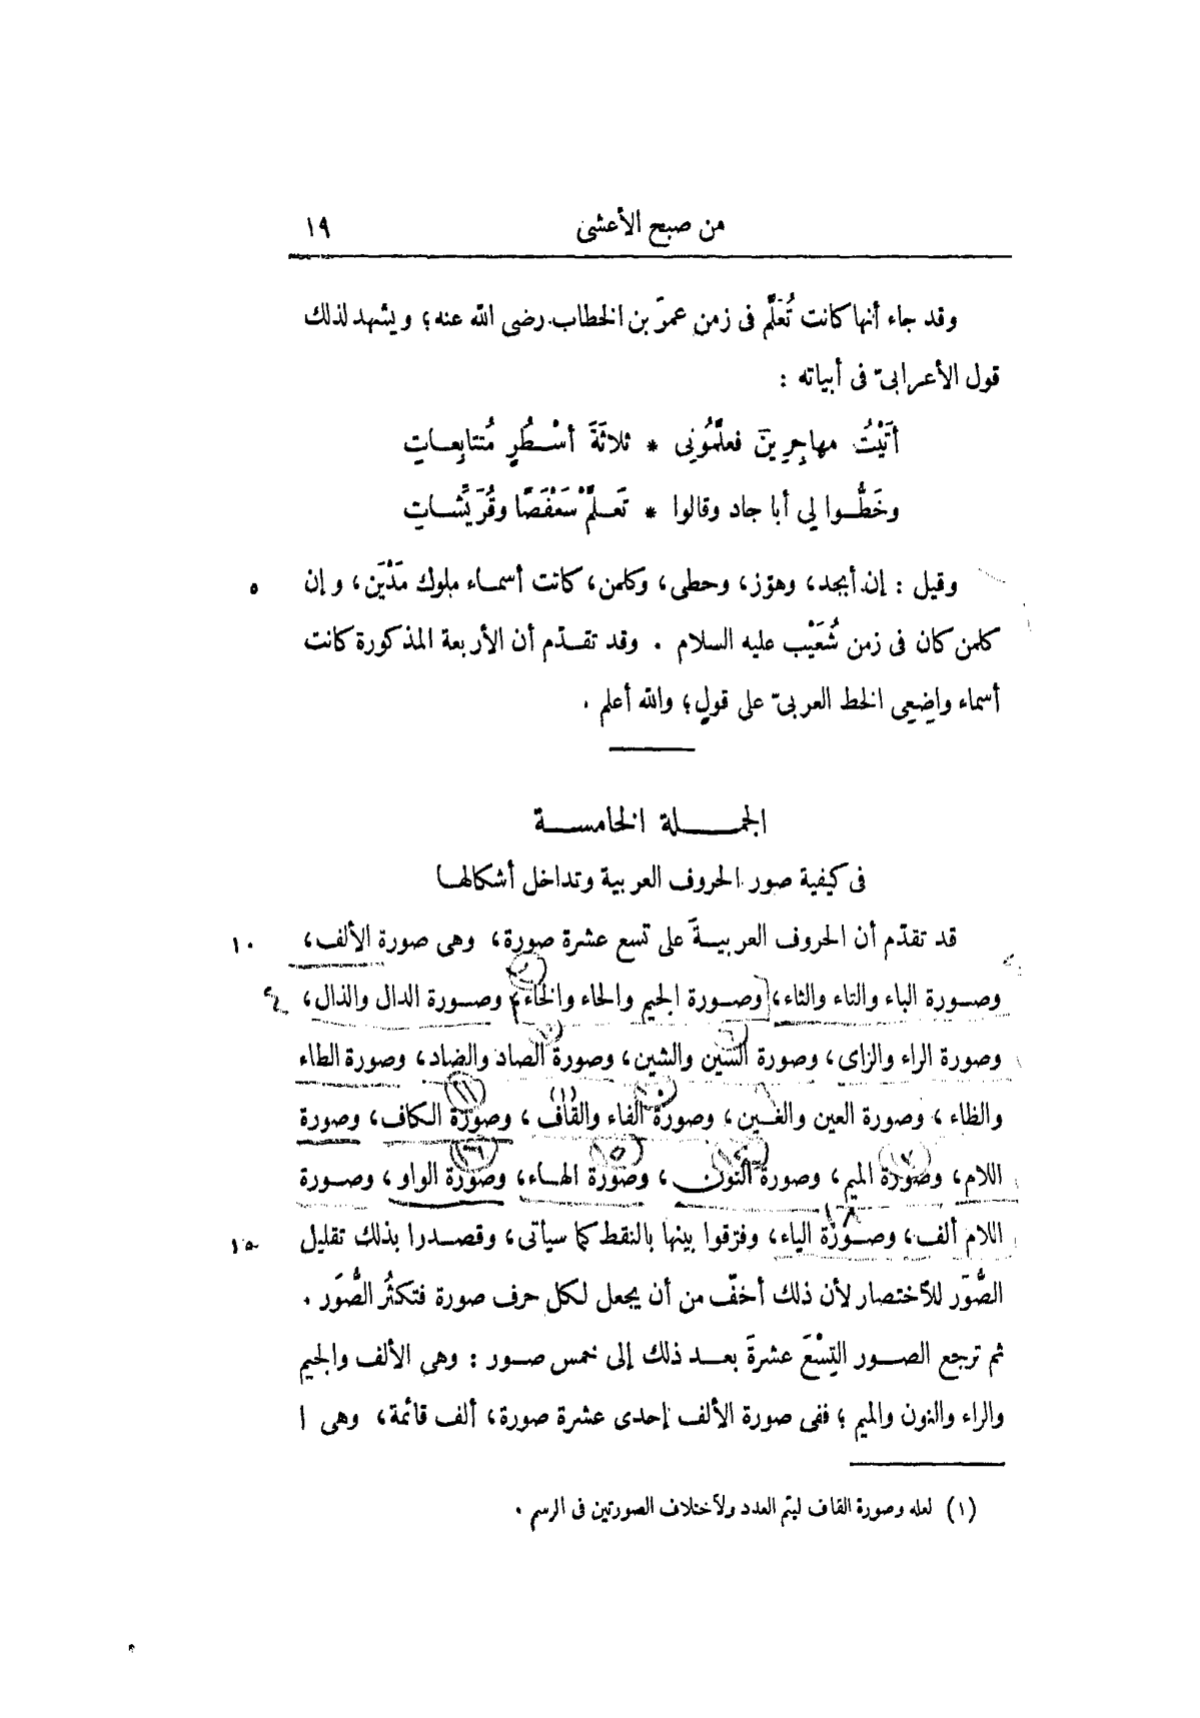 من صبح الأعشى ١٩
وقد جاء أنها كانت تُعَلَّم فى زمن عمر بن الخطاب رضى الله عنه؛ ويشهد لذلك
قول الأعرابىّ فى أبياته :
أتَيْتُ مهاجِرِينَ فعلَّمُونِى * ثلاثَةَ أسْـطُرٍ مُتتابِعـاتِ
وخَطُّـوا لِى أبا جاد وقالوا * تَعـلَّمْ سَعْفَصًا وقُرَيِّشـاتِ
وقيل : إن أبجد، وهوّز، وحطى، وكلمن، كانت أسمـاء ملوك مَدْيَن، وإن ٥
كلمن كان فى زمن شُعَيْب عليه السلام . وقد تقـدّم أن الأربعة المذكورة كانت
أسماء واضِعِى الخط العربىّ على قولٍ؛ والله أعلم .
الجمـــلة الخامســة
فى كيفية صور الحروف العربية وتداخل أشكالهـا
قد تقدّم أن الحروف العربيـةَ على تسع عشرة صورة، وهى صورة الألف، ١٠
وصـورة الباء والتاء والثاء، وصـورة الجيم والحاء والخاء، وصـورة الدال والذال،
وصورة الراء والزاى، وصورة السين والشين، وصورة الصاد والضاد، وصورة الطاء
والظاء، وصورة العين والغـين، وصورة الفاء والقاف (١)، وصورة الكاف، وصورة
اللام، وصورة الميم، وصورة النون، وصورة الهـاء، وصورة الواو، وصـورة
اللام ألف، وصـورة الياء، وفرّقوا بينها بالنقط كما سيأتى، وقصـدرا بذلك تقليل ١٥
الصُّوَر للآختصار لأن ذلك أخفّ من أن يجعل لكل حرف صورة فتكثُر الصُّوَر .
ثم ترجع الصـور التِسْعَ عشرةَ بعـد ذلك إلى خمس صـور : وهى الألف والجيم
والراء والنون والميم؛ ففى صورة الألف إحدى عشرة صورة، ألف قائمة، وهى ا
(١) لعله وصورة القاف ليتم العدد ولآختلاف الصورتين فى الرسم .